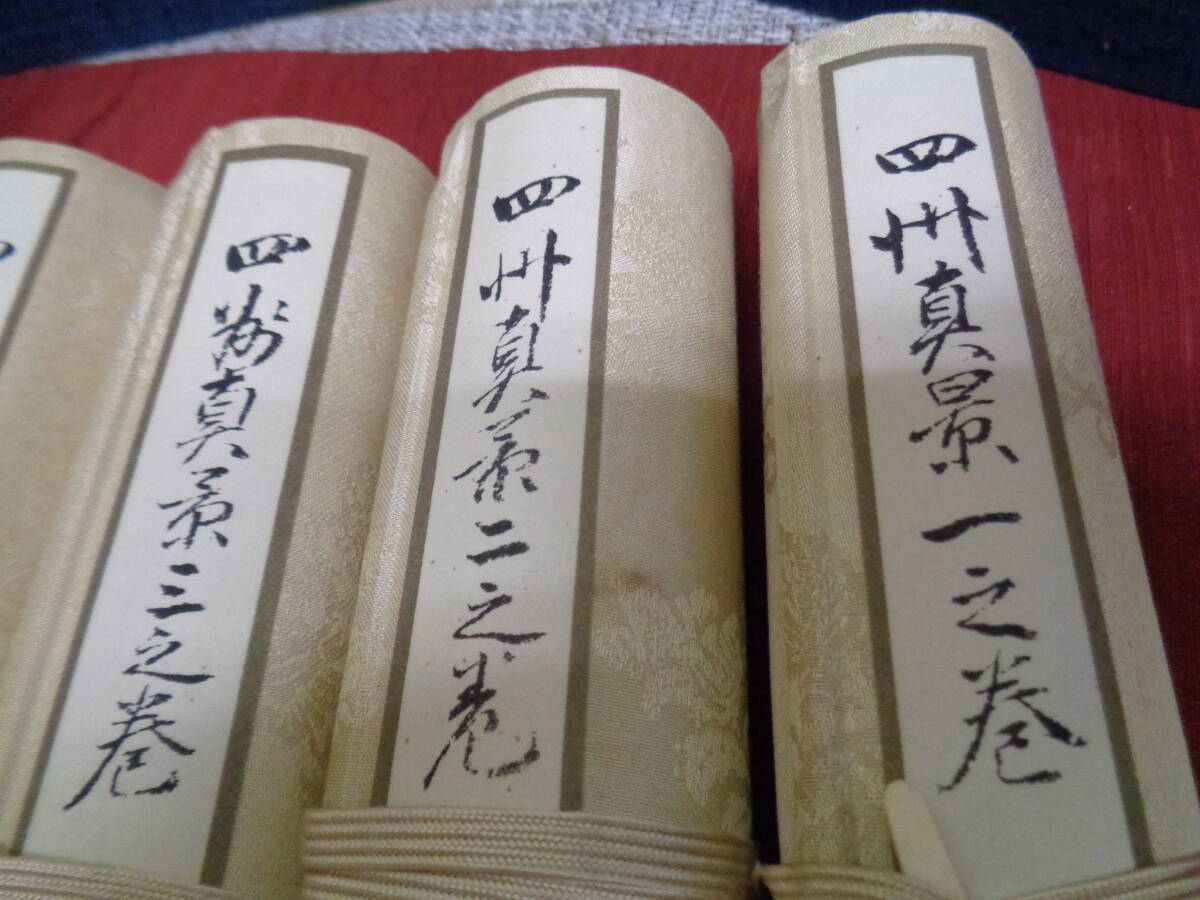 四州真景一之巻
四州真景二之巻
四州真景三之巻